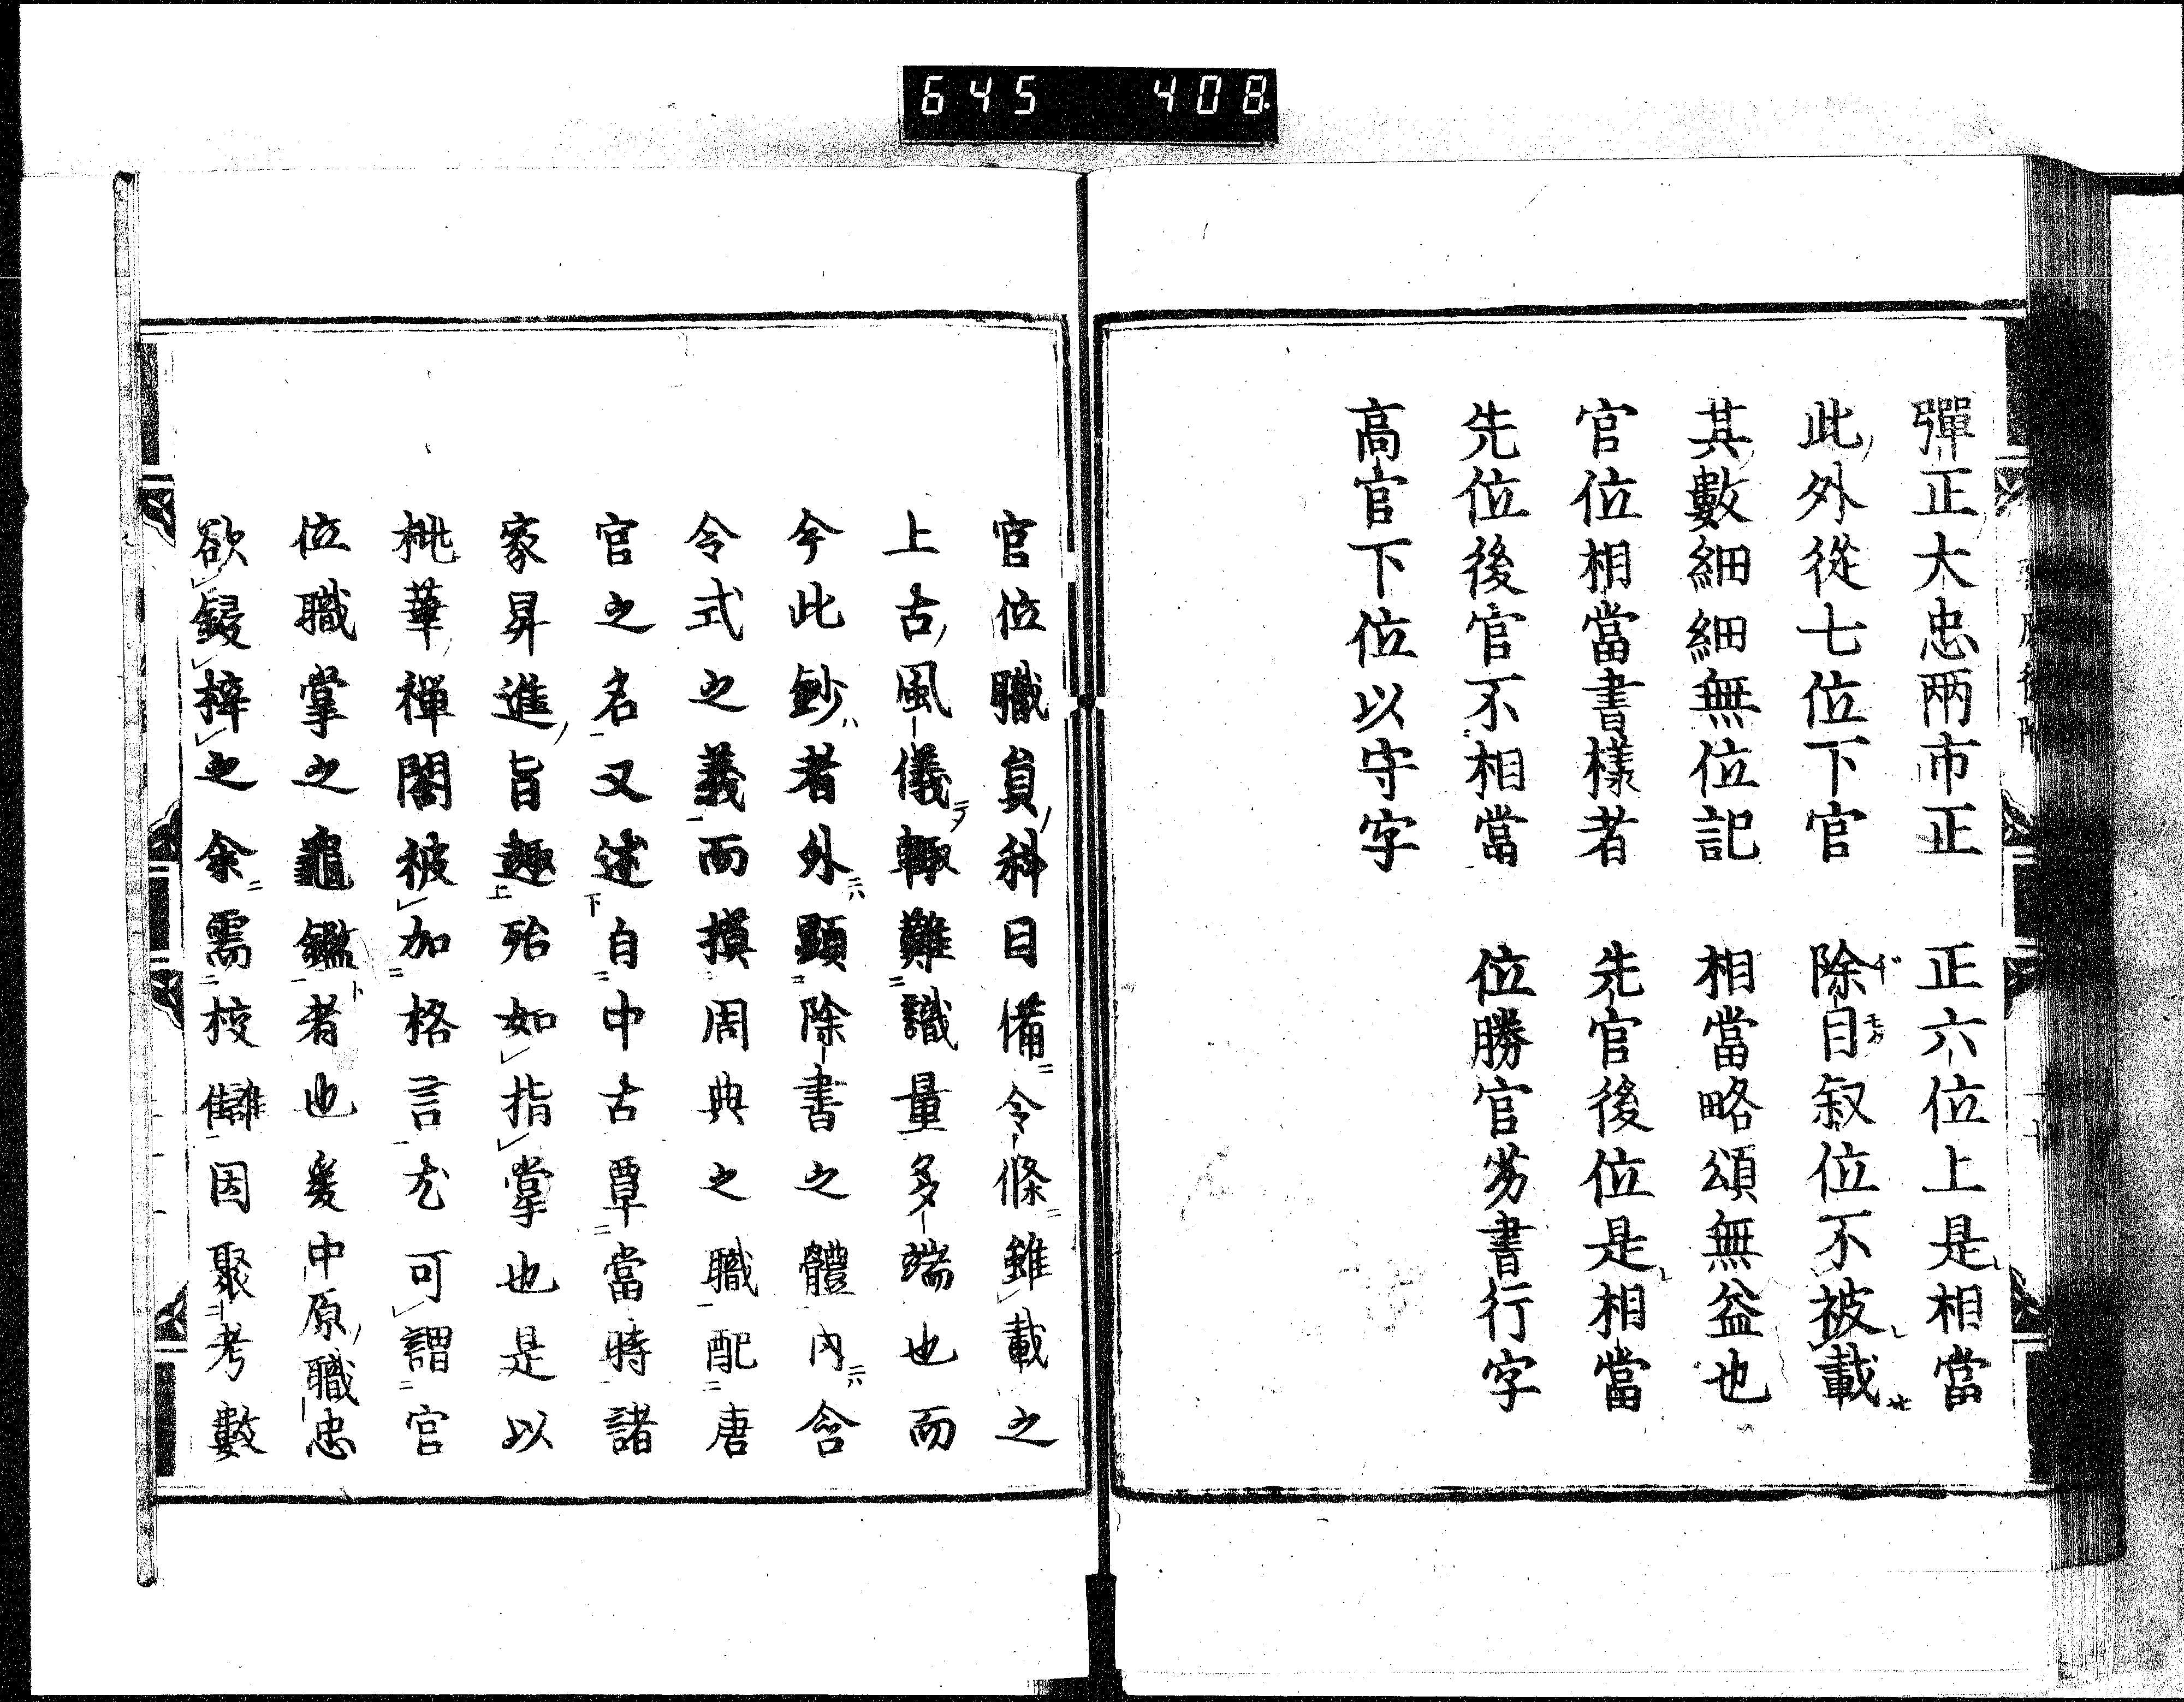 645 408
彈正大忠両市正 正六位上是相當
此外從七位下官 除目叙位不被載
其數細細無位記 相當略頌無益也
官位相當書樣者 先官後位是相當
先位後官不相當 位勝官劣書行字
高官下位以守字
官位職負科目備令條雖載之
上古風儀輙難識量多端也而
今此鈔者外顕除書之體内含
令式之義而摸周典之職配唐
官之名又述自中古覃當時諸
家昇進旨趣殆如指掌也是以
桃華禅閤被加格言尤可謂官
位職掌之龜鑑者也爰中原職忠
欲鋟梓之余需校讎因聚考數